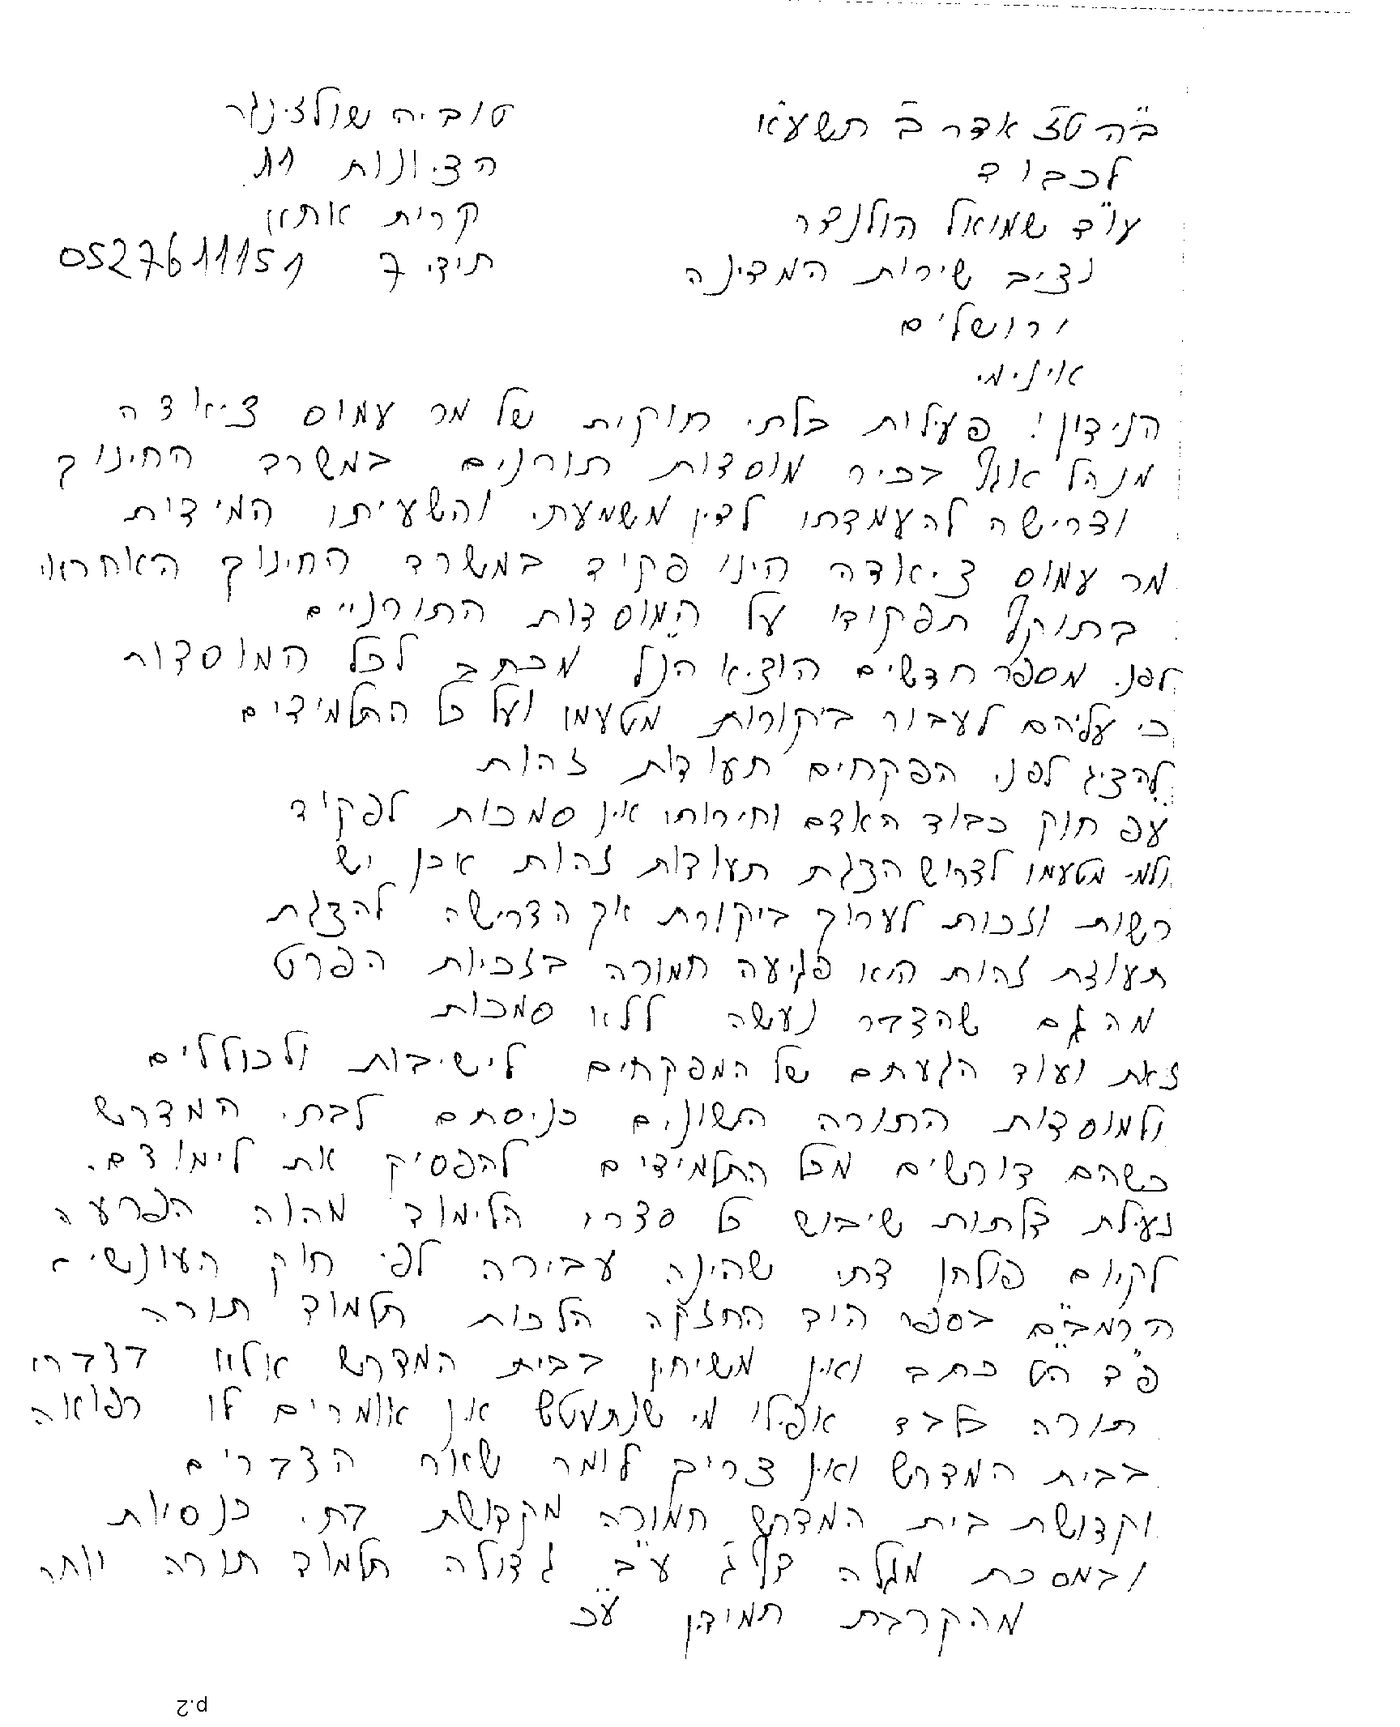 ב"ה טז אדר ב תשע"א
לכבוד
עו"ד שמואל הולנדר
נציב שירות המדינה
ירושלים
א.נ.י.מ.
טוביה שולזינגר
הציונות 11
קרית אתא
ת.ד. 7 0527611151
הנידון: פעילות בלתי חוקית של מר עמוס ציאודה
מנהל אגף בכיר מוסדות תורנים במשרד החינוך
ודרישה להעמדתו לדין משמעתי והשעייתו המידית
מר עמוס ציאודה הינו פקיד במשרד החינוך האחראי
בתוקף תפקידו על המוסדות התורניים
לפני מספר חדשים הוציא הנ"ל מכתב לכל המוסדות
כי עליהם לעבור ביקורות מטעמו ועל כל התלמידים
להציג לפני הפקחים תעודות זהות
עפ חוק כבוד האדם וחירותו אין סמכות לפקיד
ולמי מטעמו לדרוש הצגת תעודות זהות אכן יש
רשות וזכות לערוך ביקורת אך הדרישה להצגת
תעודת זהות היא פגיעה חמורה בזכויות הפרט
מה גם שהדבר נעשה ללא סמכות
זאת ועוד הגעתם של המפקחים לישיבות ולכוללים
ולמוסדות התורה השונים כניסתם לבתי המדרש
כשהם דורשים מכל התלמידים להפסיק את לימודם.
נעילת דלתות שיבוש כל סדרי הלימוד מהוה הפרעה
לקיום פולחן דתי שהינה עבירה לפי חוק העונשין
הרמב"ם בספר היד החזקה הלכות תלמוד תורה
פ"ד ה"ט כתב ואין משיחין בבית המדרש אלא בדברי
תורה בלבד אפילו מי שנתעטש אין אומרים לו רפואה
בבית המדרש ואין צריך לומר שאר הדברים
וקדושת בית המדרש חמורה מקדושת בתי כנסיות
ובמסכת מגלה דף ג ע"ב גדולה תלמוד תורה יותר
מהקרבת תמידין עכ
p.2